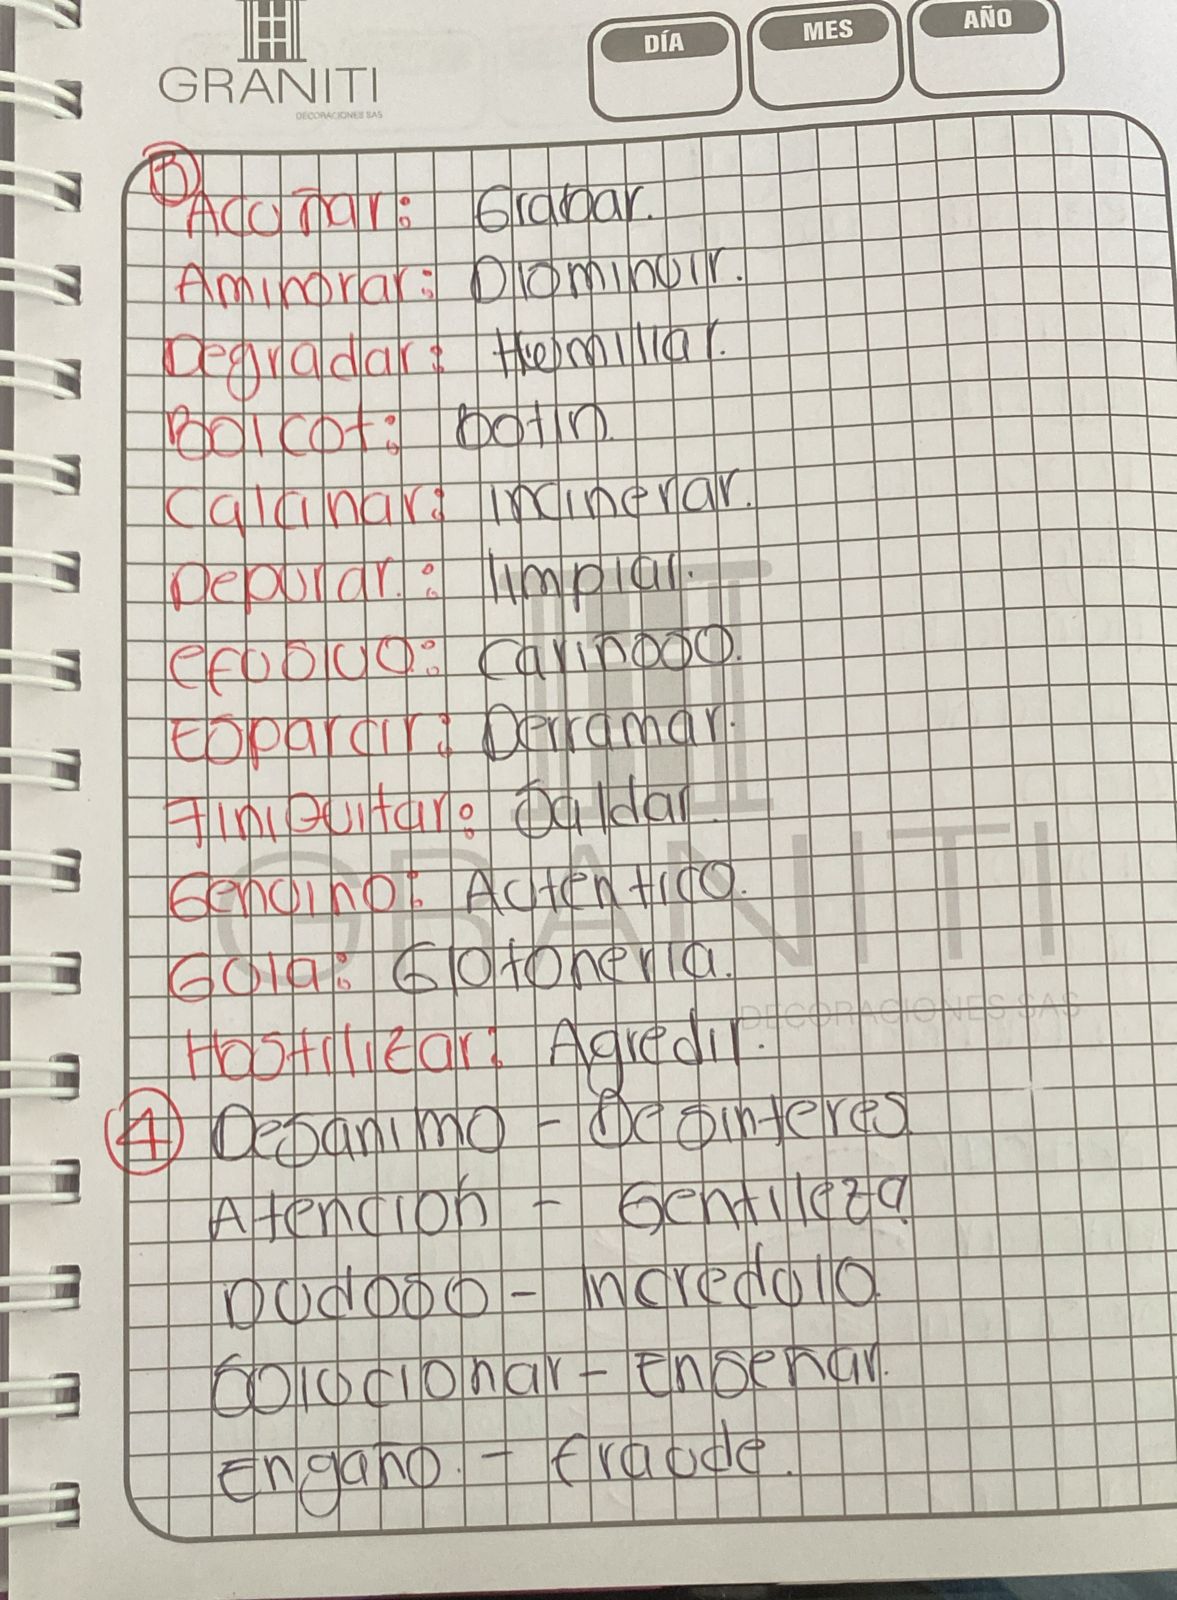 GRANITI
DECORACIONES SAS
DÍA
MES
AÑO
3
Acuñar: Grabar.
Aminorar: Disminuir.
Degradar: Humillar.
Boicot: botin.
Calcinar: incinerar.
Depurar: limpiar.
efusivo: cariñoso.
Esparcir: Derramar.
Finiquitar: Saldar.
Genuino: Autentico.
Gula: Glotoneria.
Hostilizar: Agredir.
4 Desanimo - Desinteres.
Atencion - Gentileza
Dudoso - incredulo.
Solucionar - Enseñar.
Engaño. - fraude.
GRANITI
DECORACIONES SAS